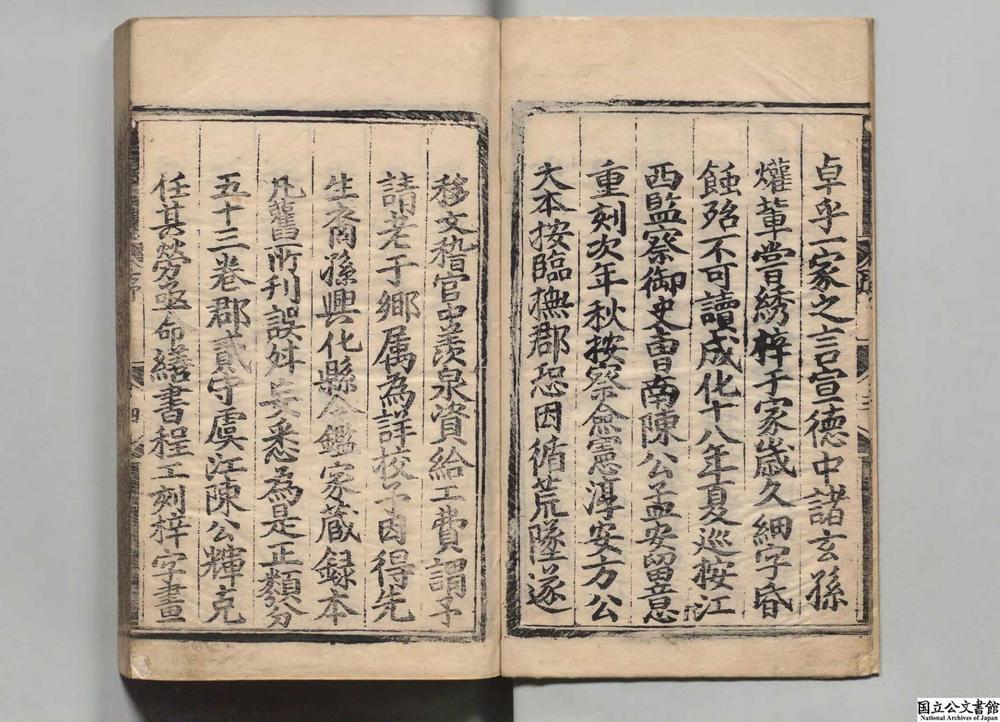 卓乎一家之言宣德中諸玄孫
爟輩嘗綉梓于家歲久細字昏
蝕殆不可讀成化十八年夏巡按江
西監察御史曹南陳公孟安留意
重刻次年秋按察僉憲淳安方公
大本按臨撫郡恐因循荒墜遂
移文稽官中羨泉資給工費謂予
請老于鄉属為詳校予因得先
生裔孫興化縣令鑑家蔵録本
凡舊所刊誤舛妄悉為是正類分
五十三巻郡貳守虞江陳公輝克
任其勞亟命繕書程工刻梓字畫
序
四
国立公文書館
National Archives of Japan